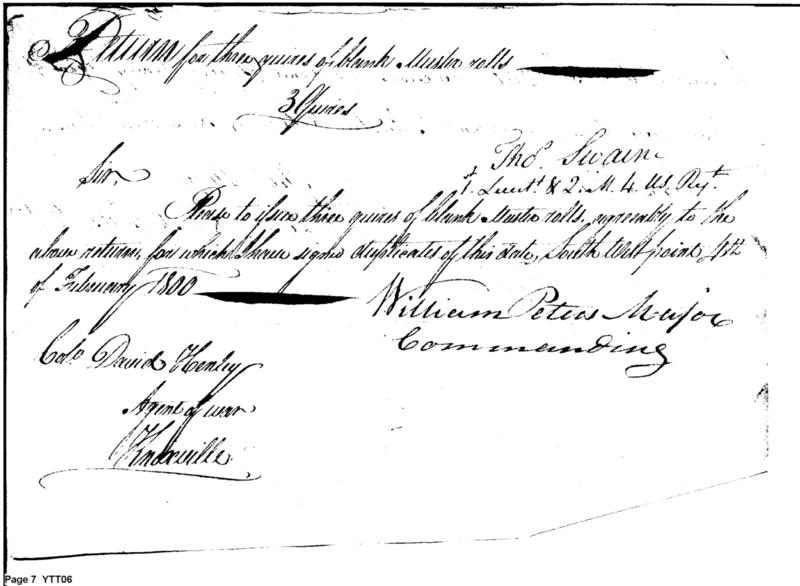 Return for three quires of blank Muster rolls
3 Quires
Thos. Swain
Sir,
1st. Lieut. & 2. M. 4. US. Regt.
Please to issue three quires of blank Muster rolls, agreeably to the
above return, for which I have signed duplicates of this date, South West point, 4th
of February 1800
William Peters Major
Commanding
Colo. David Henley
Agent of war
Knoxville
Page 7 YTT06